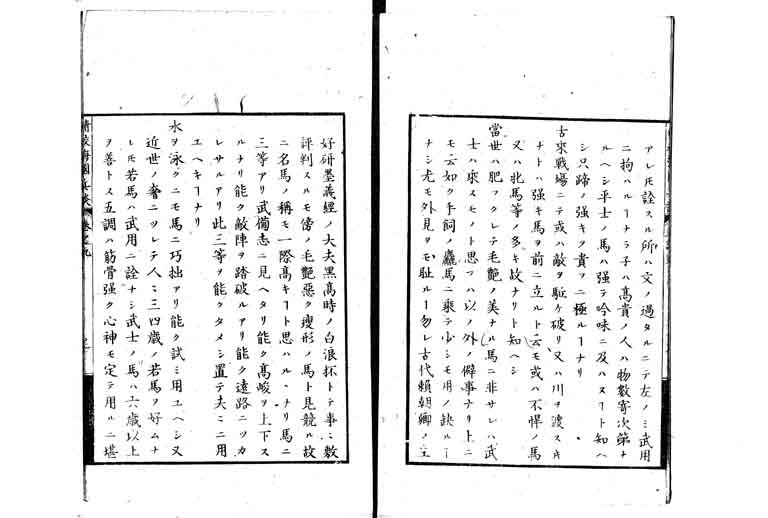 アレ𪜈詮スル所ハ文ノ過タルニテ左ノミ武用
ニ拘ハルヿナラ子ハ高貴ノ人ハ物數寄次第ナ
ルヘシ平士ノ馬ハ强テ吟味ニ及ハヌヿト知ヘ
シ只蹄ノ强キヲ貴フニ極ルヿナリ
古來戰場ニテ或ハ敵ヲ駈ケ破リ又ハ川ヲ渡ス片
ナトハ强キ馬ヲ前ニ立ルト云モ或ハ不悍ノ馬
又ハ牝馬等ノ多キ故ナリト知ヘシ
當世ハ肥フクレテ毛艷ノ美ナル馬ニ非サレハ武
士ハ乘スモノト思フハ以ノ外ノ僻事ナリ上ニ
モ云如ク手飼ノ羸馬ニ乘テ少シモ用ノ缺ルヿ
ナシ尤モ外見ヲモ耻ルヿ勿レ古代賴朝卿ノ生
好研墨義經ノ大夫黑高時ノ白浪抔トテ事〻敷
評判スルモ傍ノ毛艷惡ク瘦形ノ馬ト見競ル故
ニ名馬ノ稱モ一際髙キヿト思ハルヽナリ馬ニ
三等アリ武備志ニ見ヘタリ能ク高峻ヲ上下ス
ルナリ能ク敵陣ヲ踏破ルアリ能ク遠路ニツカ
レサルアリ此三等ヲ能クタメシ置テ夫〻ニ用
ユヘキヿナリ
水ヲ泳クニモ馬ニ巧拙アリ能ク試ミ用ユヘシ又
近世ノ奢ニツレテ人〻三四歲ノ若馬ヲ好ムナ
レ𪜈若馬ハ武用ニ詮ナシ武士ノ馬ハ六歲以上
ヲ善トス五調ハ筋骨强ク心神モ定テ用ルニ堪
精校海國兵談 卷之九